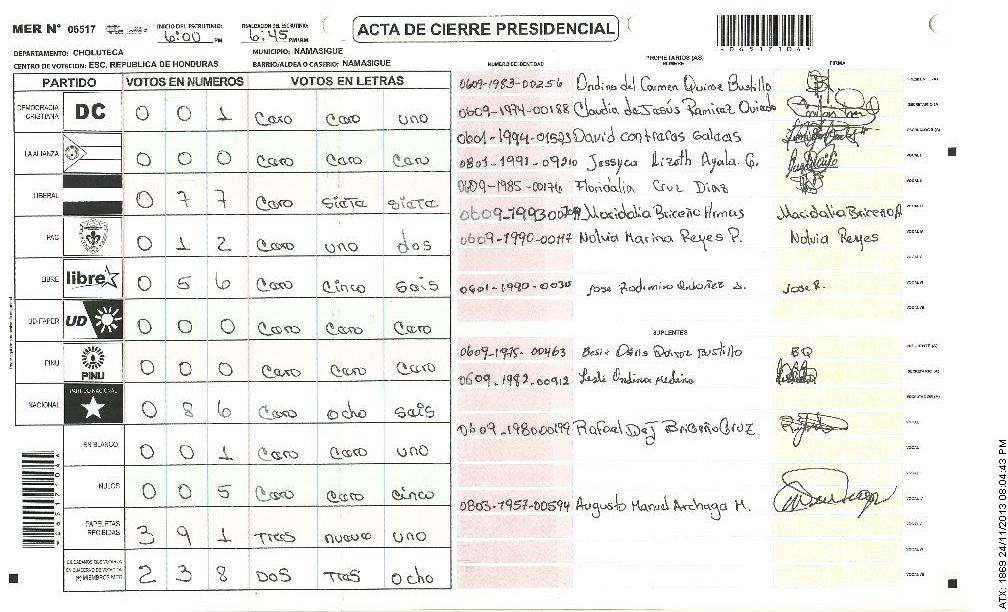 MER N° 06517 INICIO DEL ESCRUTINIO: 6:00 PM FINALIZACION DEL ESCRUTINIO: 6:45 PM/AM ACTA DE CIERRE PRESIDENCIAL
DEPARTAMENTO: CHOLUTECA MUNICIPIO: NAMASIGUE
CENTRO DE VOTACION: ESC. REPUBLICA DE HONDURAS BARRIO/ALDEA O CASERIO: NAMASIGUE
PARTIDO VOTOS EN NUMEROS VOTOS EN LETRAS
DEMOCRACIA CRISTIANA DC 0 0 1 Cero Cero uno
LA ALIANZA 0 0 0 Cero Cero Cero
LIBERAL 0 7 7 Cero Siete Siete
PAC 0 1 2 Cero uno dos
LIBRE libre 0 5 6 Cero Cinco Seis
UD-FAPER UD 0 0 0 Cero Cero Cero
PINU PINU 0 0 0 Cero Cero Cero
NACIONAL PARTIDO NACIONAL 0 8 6 Cero Ocho Seis
EN BLANCO 0 0 1 Cero Cero uno
NULOS 0 0 5 Cero Cero Cinco
PAPELETAS RECIBIDAS 3 9 1 Tres nueve uno
2 3 8 DOS Tres Ocho
NUMERO DE IDENTIDAD PROPIETARIOS (AS) NOMBRE FIRMA
0609-1983-00256 Ondina del Carmen Quiroz Bustillo
0609-1974-00188 Claudia de Jesús Ramirez Oviedo SECRETARIO (A)
0601-1994-01593 David contreras Galeas
0801-1991-09210 Jessyca Lizeth Ayala G.
0609-1985-00176 Floridalia Cruz Diaz
Macidalia Briceño
0609-1990-00117 Nolvia Marina Reyes P. Nolvia Reyes
0601-1990-0030 Jose R.
SUPLENTES
0609-1975-00463 Bustillo BQ
0609-1982-00912 Lesli Ondina Medina SECRETARIO (A)
0609-1980-00199 Rafael De J Briceño Cruz
0803-1957-00594 Augusto Manuel Archaga M.
ATX: 1869 24/11/2013 08:04:43 PM